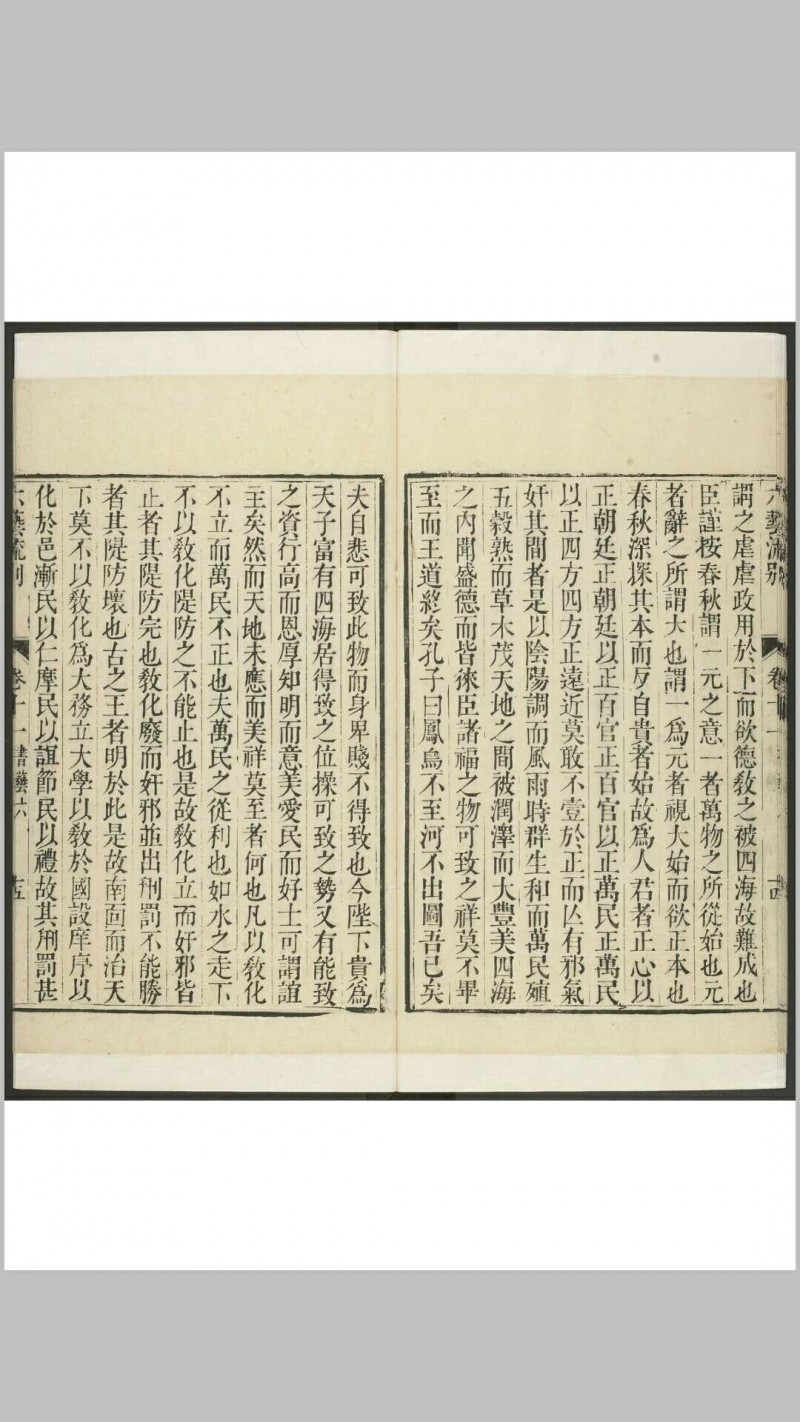 六藝流别 卷十一 十四
謂之虐虐政用於下而欲德敎之被四海故難成也
臣謹按春秋謂一元之意一者萬物之所從始也元
者辭之所謂大也謂一爲元者視大始而欲正本也
春秋深探其本而反自貴者始故爲人君者正心以
正朝廷正朝廷以正百官正百官以正萬民正萬民
以正四方四方正遠近莫敢不壹於正而亾有邪氣
奸其間者是以陰陽調而風雨時群生和而萬民殖
五穀熟而草木茂天地之間被潤澤而大豐美四海
之內聞盛德而皆徠臣諸福之物可致之祥莫不畢
至而王道終矣孔子曰鳳鳥不至河不出圖吾已矣
夫自悲可致此物而身卑賤不得致也今陛下貴爲
天子富有四海居得致之位操可致之勢又有能致
之資行高而恩厚知明而意美愛民而好士可謂誼
主矣然而天地未應而美祥莫至者何也凡以敎化
不立而萬民不正也夫萬民之從利也如水之走下
不以敎化隄防之不能止也是故敎化立而奸邪皆
止者其隄防完也敎化廢而奸邪並出刑罰不能勝
者其隄防壞也古之王者明於此是故南面而治天
下莫不以敎化爲大務立大學以敎於國設庠序以
化於邑漸民以仁摩民以誼節民以禮故其刑罰甚
六藝流别 卷十一書藝六 十五